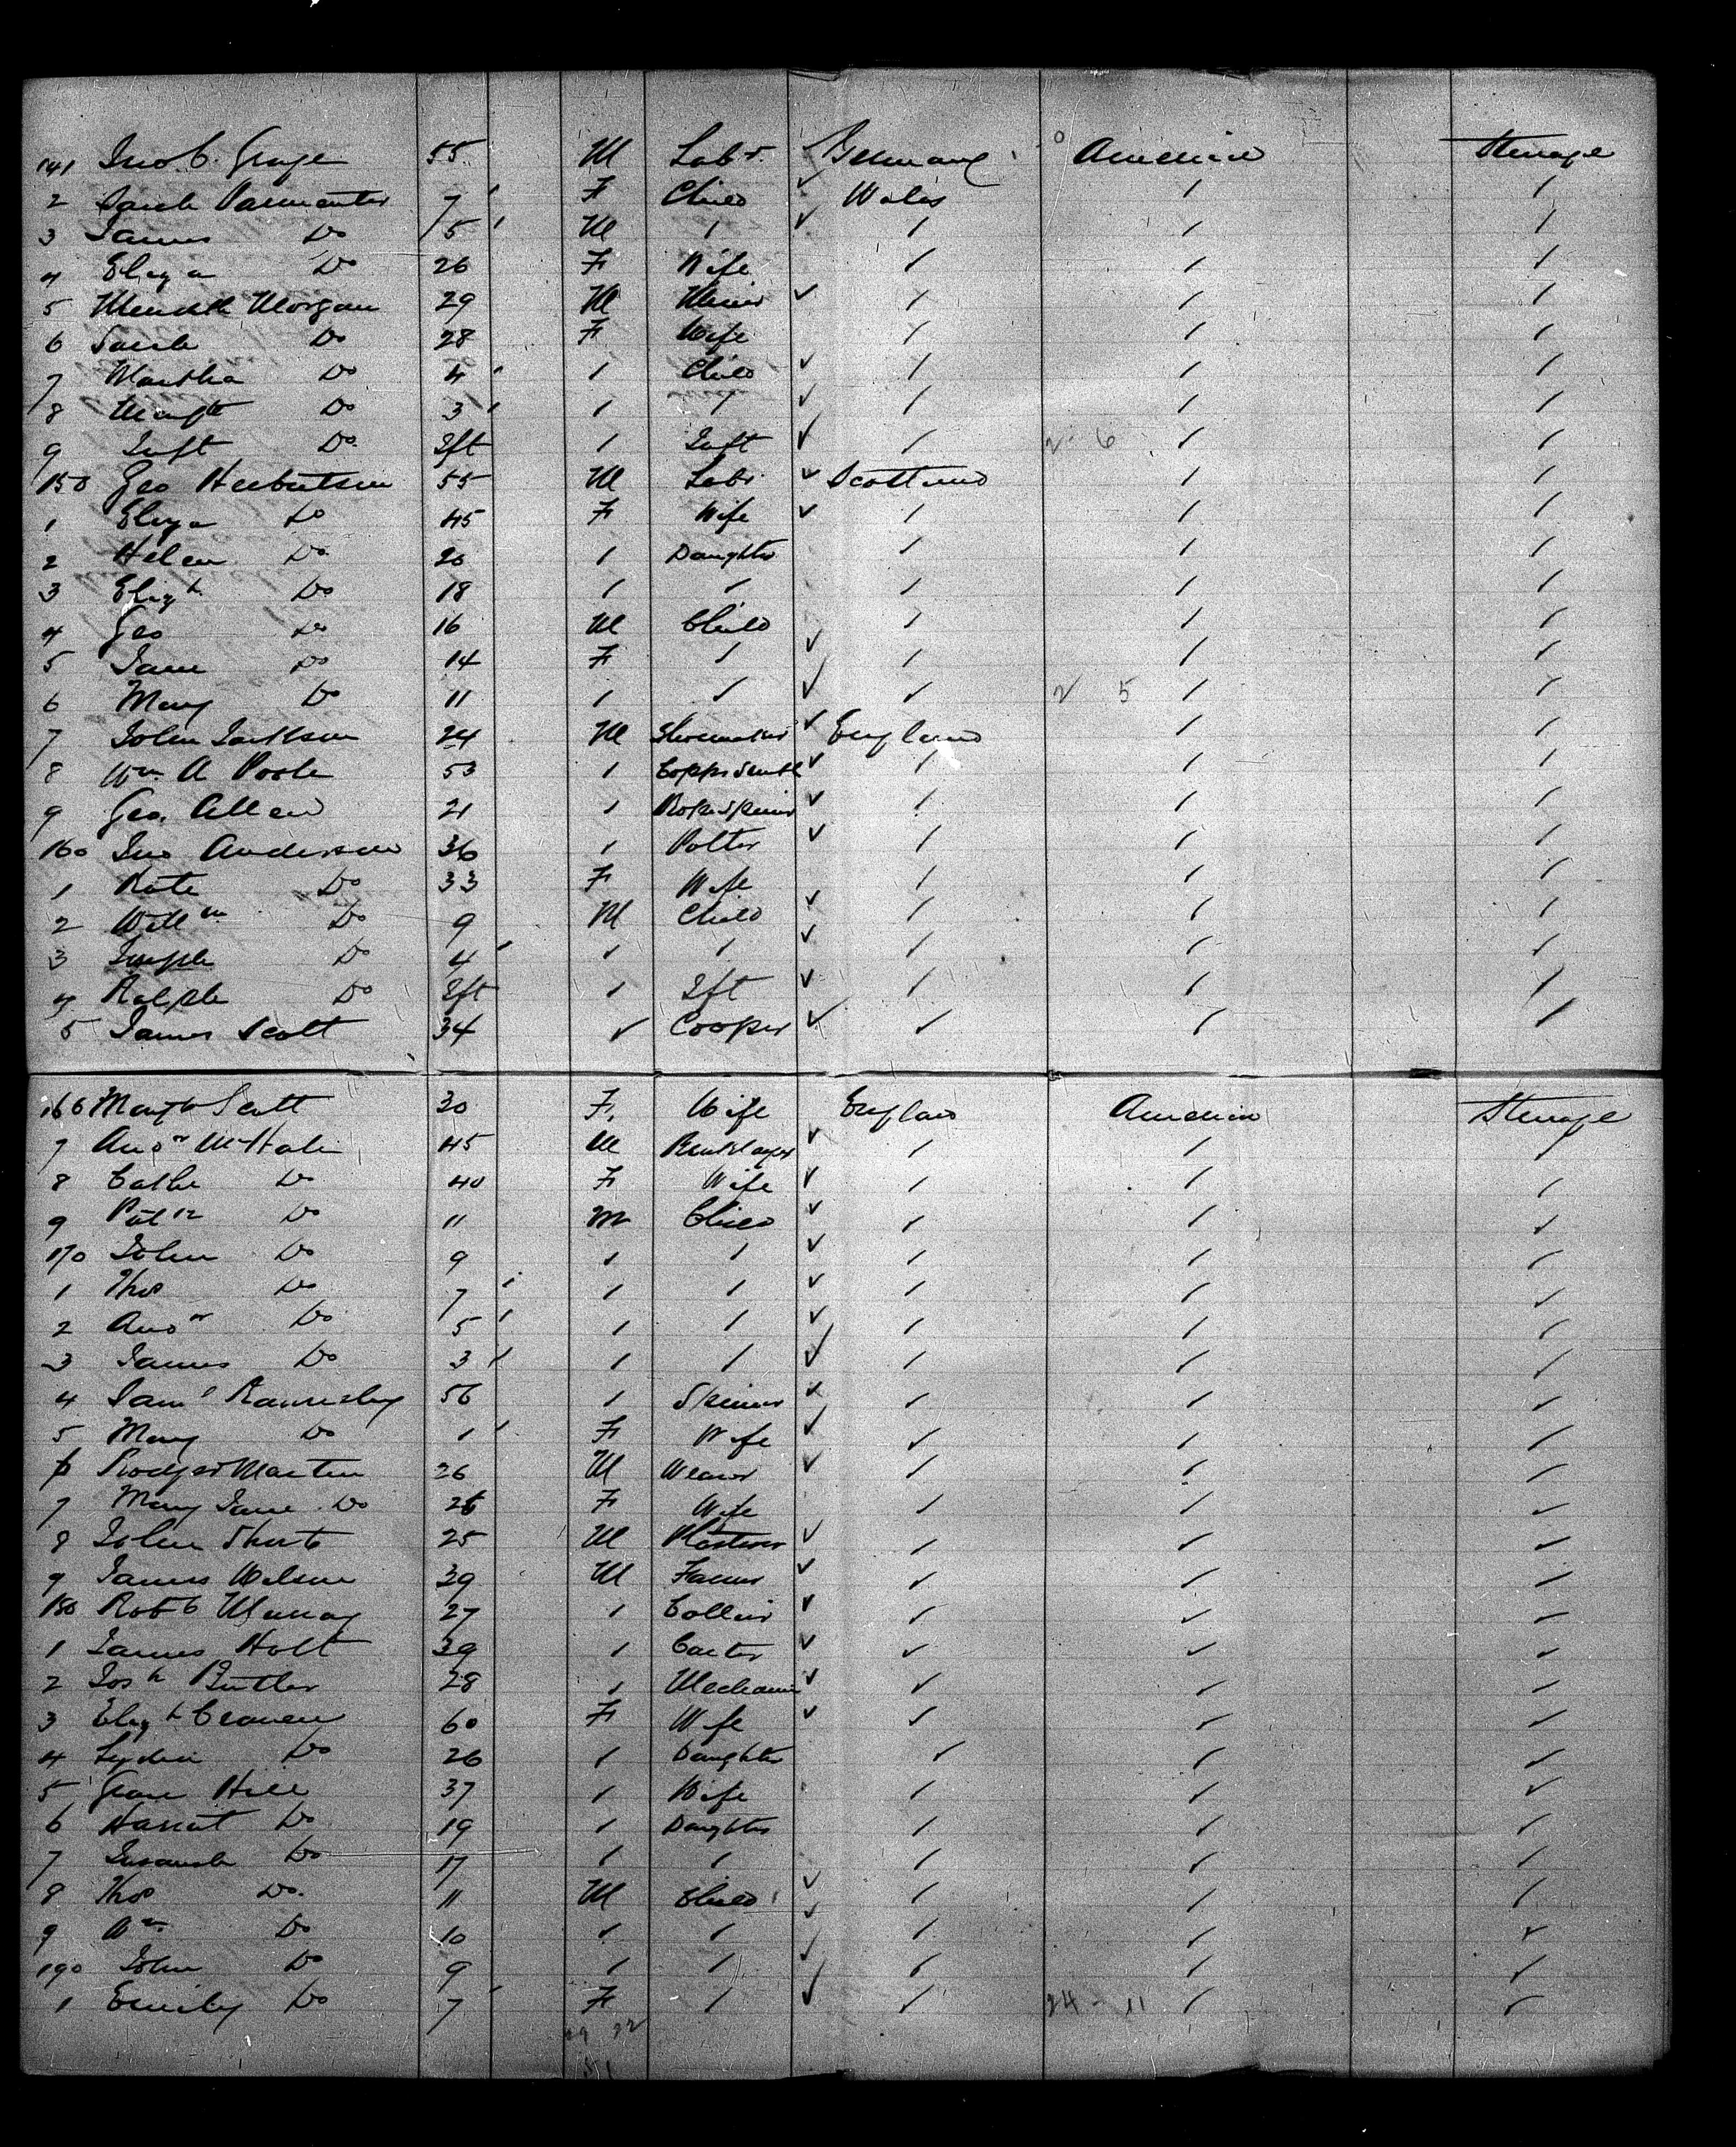 141 Jno C. 55 M Labr. Germany America Steerage
2 Sarah Parmenter 7 F Child Wales
3 James Do 5 M
4 Eliza Do 26 F Wife
5 Morgan 29 M Miner
6 Sarah Do 28 F Wife
7 Martha Do 4 Child
8 Margt Do 3
9 Inft Do Ift Inft 2 6
150 Geo Herbertson 55 M Labr Scotland
1 Eliza Do 45 F Wife
2 Helen Do 20 Daughter
3 Elizh Do 18
4 Geo Do 16 M Child
5 Jane Do 14 F
6 Mary Do 11 2 5
7 John Jackson 24 M Shoemaker England
8 Wm A Poole 53 Coppersmith
9 Geo. Allen 21 Rope Spinner
160 Jno Anderson 36 Potter
1 Kate Do 33 F Wife
2 Willm Do 9 M Child
3 Joseph Do 4
4 Ralph Do Ift Ift
5 James Scott 34 Cooper
166 Margt Scott 30 F. Wife England America Steerage
7 Andw McHale 45 M Bricklayer
8 Cathe Do 40 F Wife
9 Patk Do 11 M Child
170 John Do 9
1 Thos Do 7
2 Andw Do 5
3 James Do 3
4 Saml 56 Spinner
5 Mary Do 1 F Wife
6 Rodger Martin 26 M Weaver
7 Mary Jane Do 26 F Wife
8 John Short 25 M Plasterer
9 James Wilson 39 M Farmer
180 Robt Murray 27 Collier
1 James Holt 39 Carter
2 Josh Butler 28 Mechanic
3 Elizh Craven 60 F Wife
4 Lydia Do 26 Daughter
5 Hill 37 Wife
6 Harriet Do 19 Daughter
7 Susannah Do 17
8 Thos Do. 11 M Child
9 Wm Do 10
190 John Do 9
1 Emily Do 7 F 24 - 11